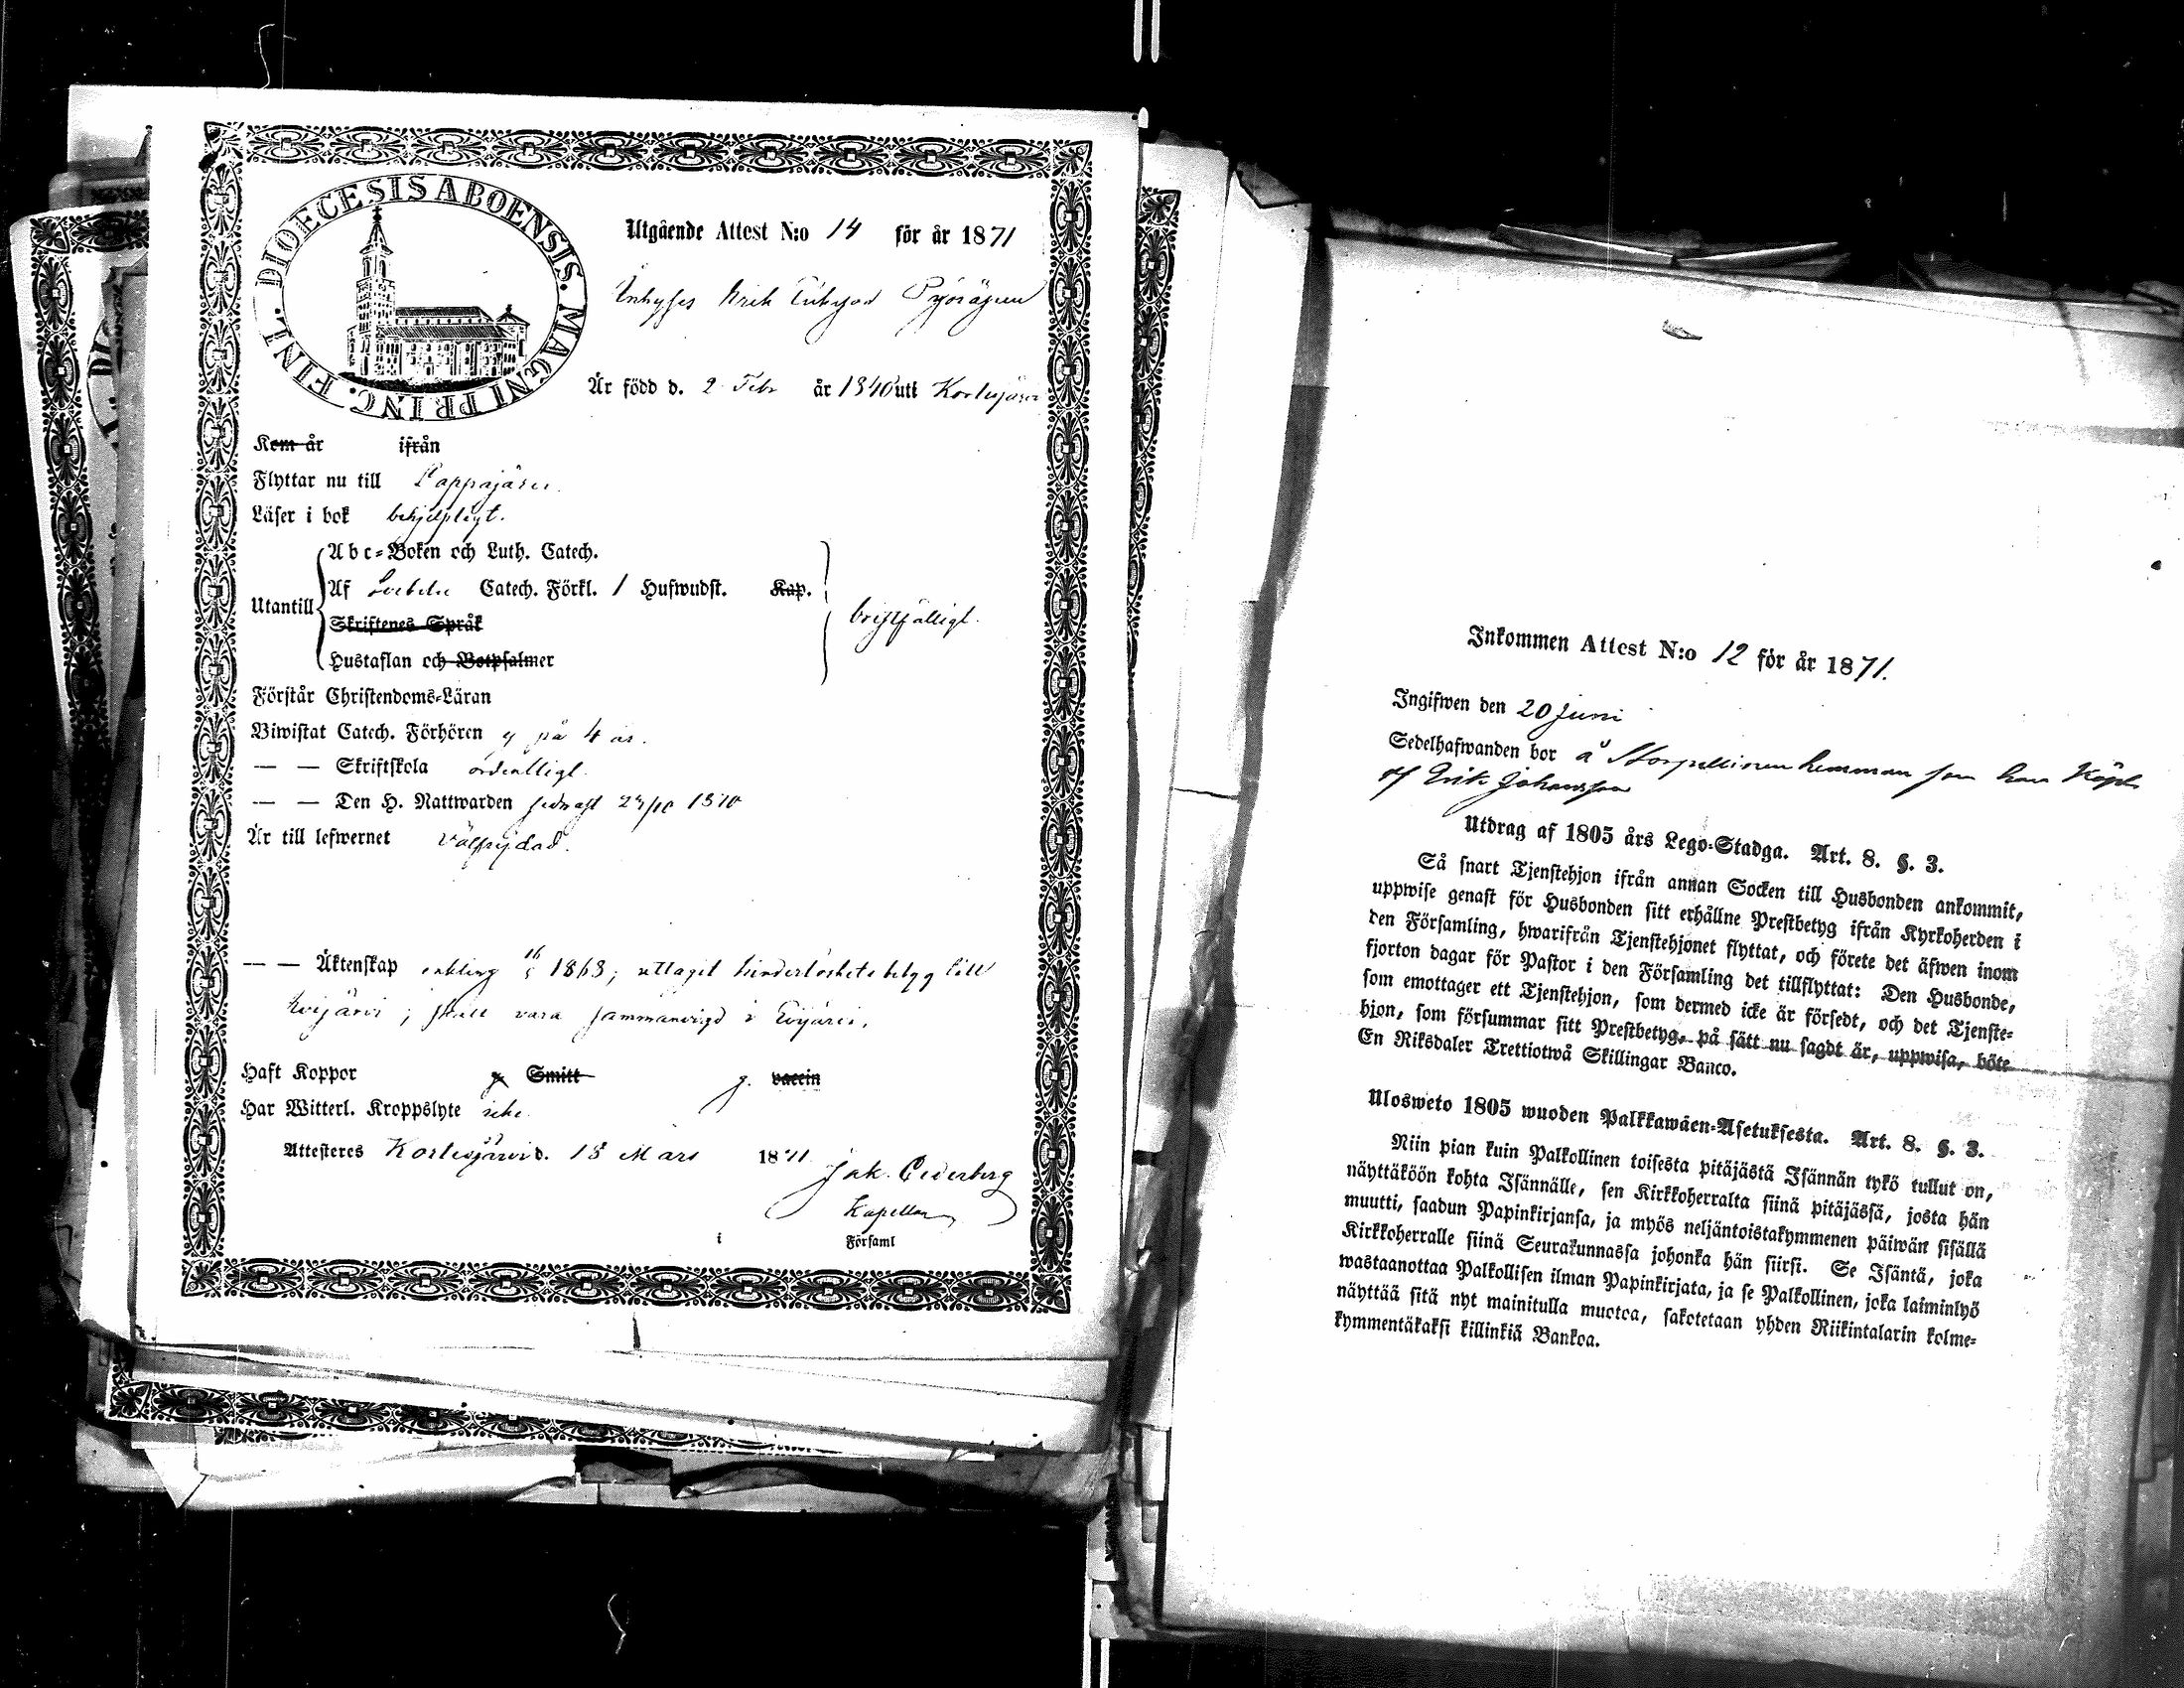 DIOECESIS ABOENSIS. MAGNI PRINC. FINL.
Utgående Attest N:o 14 för år 1871
Inhyses Erik Eriksson
Är född d. 2 Febr år 1840 uti Kortesjärvi
Kom år ifrån
Flyttar nu till Lappajärvi
Läser i bok behjelpligt.
Abc-Boken och Luth. Catech.
Utantill Af Svebelii Catech. Förkl. 1 Hufwudst. Kap.
Skriftenes Språk
bristfälligt.
Hustaflan och Botpsalmer
Förstår Christendoms-Läran
Biwistat Catech. Förhören ej på 4 år.
— — Skriftskola ordentligt.
— — Den H. Nattwarden sednast 23/10 1870
Är till lefwernet välfrejdad.
— — Äktenskap enkling 16/5 1868; uttagit hinderlöshetsbetyg till
Evijärvi; skall vara sammanvigd i Evijärvi.
Haft Koppor Smitt j. vaccin
Har Witterl. Kroppslyte icke
Attesteres Kortesjärvi d. 18 Mars 1871
Jak. Cederberg
Kapellan
i Församl
Inkommen Attest N:o 12 för år 1871.
Ingifwen den 20 Juni
Sedelhafwanden bor å Storpellinen hemman som han köpt
af Erik Johansson
Utdrag af 1805 års Lego-Stadga. Art. 8. §. 3.
Så snart Tjenstehjon ifrån annan Socken till Husbonden ankommit,
uppwise genast för Husbonden sitt erhållne Prestbetyg ifrån Kyrkoherden i
den Församling, hwarifrån Tjenstehjonet flyttat, och förete det äfwen inom
fjorton dagar för Pastor i den Församling det tillflyttat: Den Husbonde,
som emottager ett Tjenstehjon, som dermed icke är försedt, och det Tjenste-
hjon, som försummar sitt Prestbetyg, på sätt nu sagdt är, uppwisa, böte
En Riksdaler Trettiotwå Skillingar Banco.
Ulosweto 1805 wuoden Palkkawäen-Asetuksesta. Art. 8. §. 3.
Niin pian kuin Palkollinen toisesta pitäjästä Isännän tykö tullut on,
näyttäköön kohta Isännälle, sen Kirkkoherralta siinä pitäjässä, josta hän
muutti, saadun Papinkirjansa, ja myös neljäntoistakymmenen päiwän sisällä
Kirkkoherralle siinä Seurakunnassa johonka hän siirsi. Se Isäntä, joka
wastaanottaa Palkollisen ilman Papinkirjata, ja se Palkollinen, joka laiminlyö
näyttää sitä nyt mainitulla muotoa, sakotetaan yhden Riikintalarin kolme-
kymmentäkaksi killinkiä Bankoa.